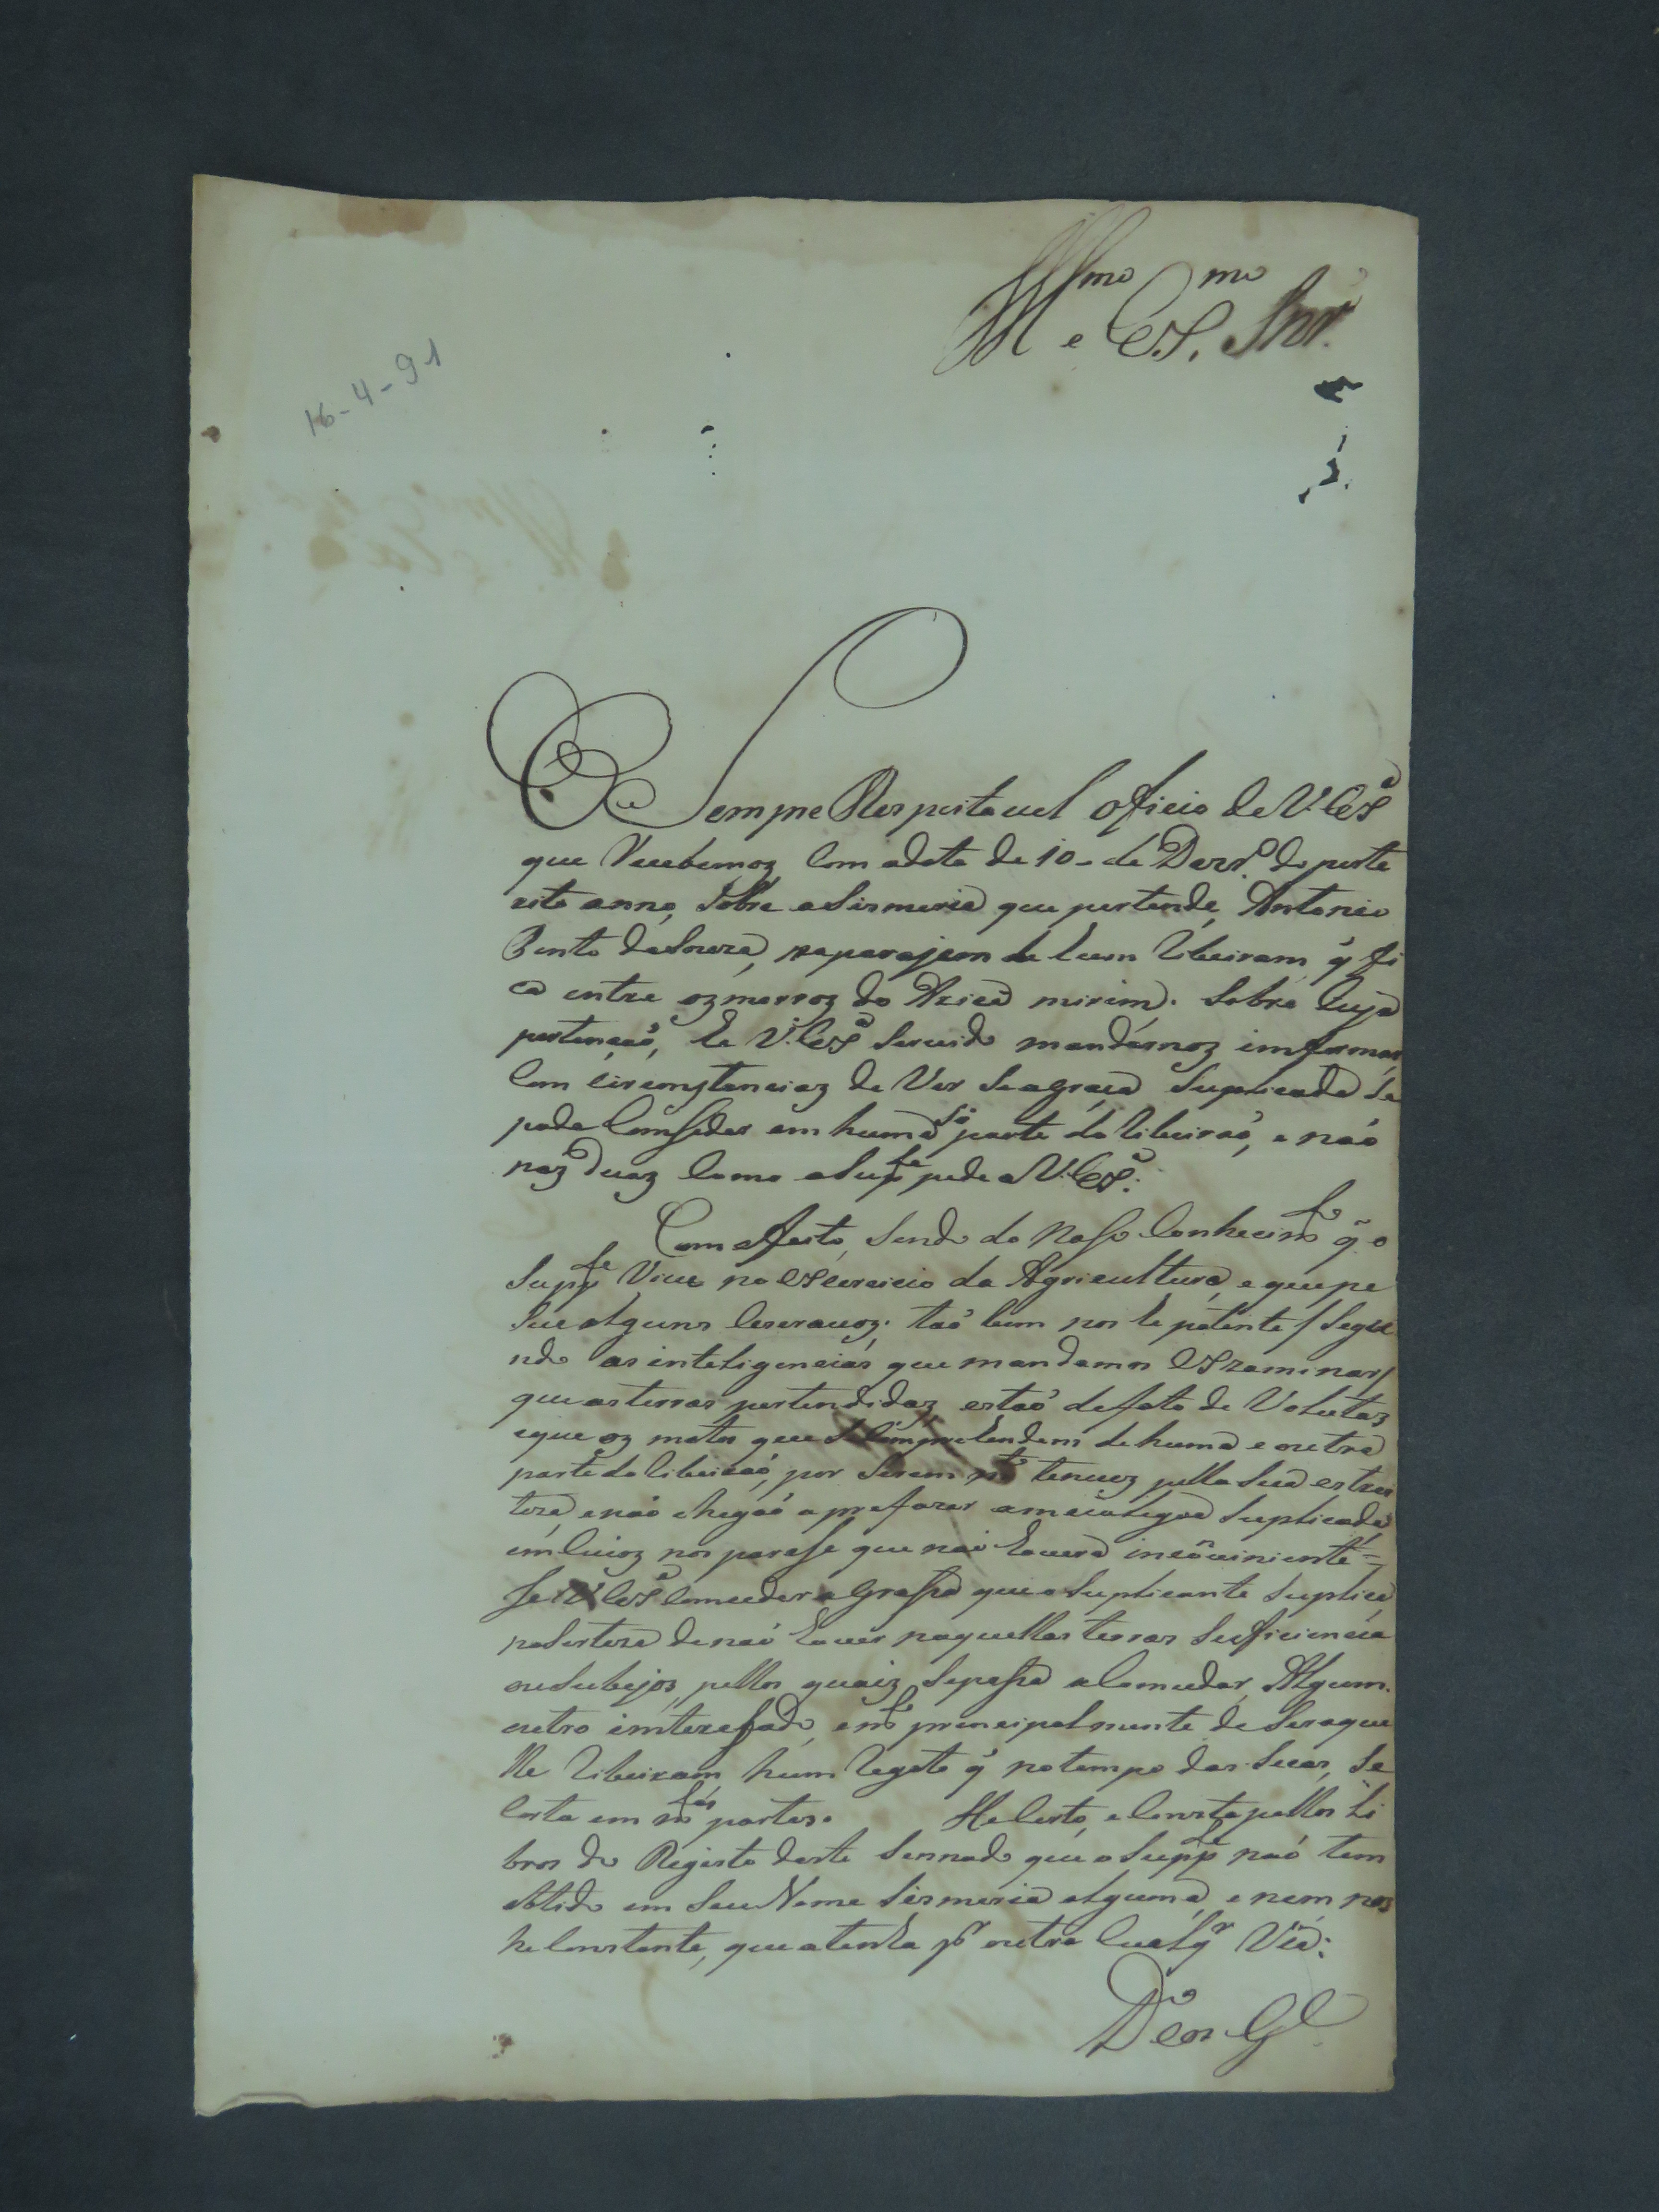 Illmo e Exmo Snr.
16-4-91
O Sempre Respeitavel oficio de V. Exª
que Recebemoz com adata de 10 de Dezrº do perte
rito anno, Sobre aSismeria que pertende, Antonio
Bento deSouza, naparajem de hum Ribeiram q̃ fi
ca entre oz morroz do Aricá mirim. Sobre Cuja
pertençaõ, he V. Exª Servido mandárnoz imformar
Com circonstanciaz de Ver Seagraça Suplicada Se
pode Comseder em huma só parte do Ribeiraõ, e naõ
naz Duaz Como oSupte pede a V. Exª:
Com efeito, Sendo do Noso Conhecimto q̃ o
Suppte Vive no Exercicio da Agricultura, e que pe
sue alguns Escravoz; taõ bem nos he patente / Segu
ndo as inteligencias que mandamos Exzaminar /
que as terras pertendidaz estaõ defato de Volutas
eque oz matos que Se Compreendem de huma e outra
parte do Ribeiraõ, por Serem mto tenuez pella Sua estrei
teza enaõ chegaõ a prefazer ameialegoa Suplicada
em cujoz nos parese que naõ havera incõviniente
Se V. Exª Comceder a Grasa que o Suplicante Suplica,
naSerteza denaõ haver naquellas terras Suficiencia
ouSubejos, pellos quaiz Seposa a Comceder, Algum
outro imteresado, emto principalmente de Ser aque
lle Ribeiram, hum Regato q̃ notempo das Secas, Se
Corta em mtas partes. He Certo, e Consta pellos Li
bros do Registo deste Sennado que o Suppte naõ tem
obtido em Seu Nome Sismeria alguma, e nem nos
he Constante, que atenha pr outra Cualqr Via:
Deos Ge